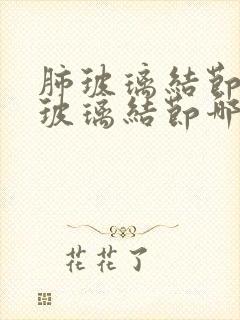 肺玻璃結節
玻璃結節哪
花花了